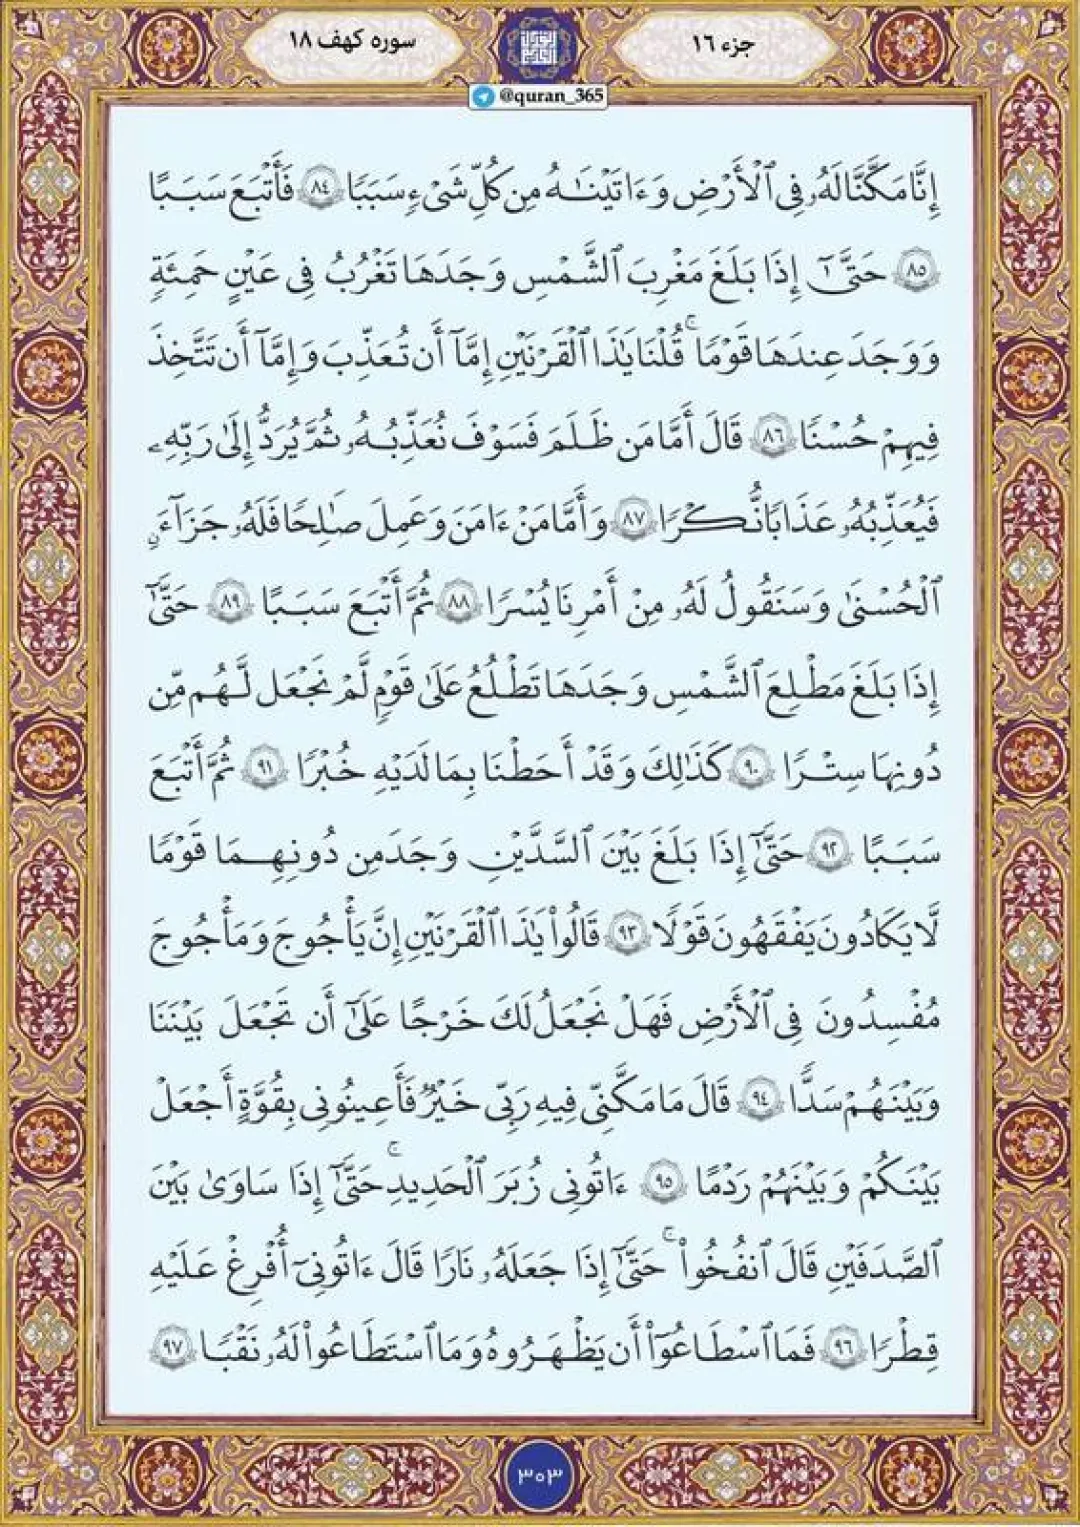 جزء ۱۶
سوره کهف ۱۸
@quran_365
إِنَّا مَكَّنَّا لَهُۥ فِي ٱلْأَرْضِ وَءَاتَيْنَٰهُ مِن كُلِّ شَيْءٍ سَبَبًا ﴿٨٤﴾ فَأَتْبَعَ سَبَبًا
﴿٨٥﴾ حَتَّىٰٓ إِذَا بَلَغَ مَغْرِبَ ٱلشَّمْسِ وَجَدَهَا تَغْرُبُ فِي عَيْنٍ حَمِئَةٍ
وَوَجَدَ عِندَهَا قَوْمًا ۗ قُلْنَا يَٰذَا ٱلْقَرْنَيْنِ إِمَّآ أَن تُعَذِّبَ وَإِمَّآ أَن تَتَّخِذَ
فِيهِمْ حُسْنًا ﴿٨٦﴾ قَالَ أَمَّا مَن ظَلَمَ فَسَوْفَ نُعَذِّبُهُۥ ثُمَّ يُرَدُّ إِلَىٰ رَبِّهِۦ
فَيُعَذِّبُهُۥ عَذَابًا نُّكْرًا ﴿٨٧﴾ وَأَمَّا مَنْ ءَامَنَ وَعَمِلَ صَٰلِحًا فَلَهُۥ جَزَآءً
ٱلْحُسْنَىٰ وَسَنَقُولُ لَهُۥ مِنْ أَمْرِنَا يُسْرًا ﴿٨٨﴾ ثُمَّ أَتْبَعَ سَبَبًا ﴿٨٩﴾ حَتَّىٰٓ
إِذَا بَلَغَ مَطْلِعَ ٱلشَّمْسِ وَجَدَهَا تَطْلُعُ عَلَىٰ قَوْمٍ لَّمْ نَجْعَل لَّهُم مِّن
دُونِهَا سِتْرًا ﴿٩٠﴾ كَذَٰلِكَ وَقَدْ أَحَطْنَا بِمَا لَدَيْهِ خُبْرًا ﴿٩١﴾ ثُمَّ أَتْبَعَ
سَبَبًا ﴿٩٢﴾ حَتَّىٰٓ إِذَا بَلَغَ بَيْنَ ٱلسَّدَّيْنِ وَجَدَ مِن دُونِهِمَا قَوْمًا
لَّا يَكَادُونَ يَفْقَهُونَ قَوْلًا ﴿٩٣﴾ قَالُوا۟ يَٰذَا ٱلْقَرْنَيْنِ إِنَّ يَأْجُوجَ وَمَأْجُوجَ
مُفْسِدُونَ فِي ٱلْأَرْضِ فَهَلْ نَجْعَلُ لَكَ خَرْجًا عَلَىٰٓ أَن تَجْعَلَ بَيْنَنَا
وَبَيْنَهُمْ سَدًّا ﴿٩٤﴾ قَالَ مَا مَكَّنِّي فِيهِ رَبِّي خَيْرٌ فَأَعِينُونِي بِقُوَّةٍ أَجْعَلْ
بَيْنَكُمْ وَبَيْنَهُمْ رَدْمًا ﴿٩٥﴾ ءَاتُونِي زُبَرَ ٱلْحَدِيدِ ۖ حَتَّىٰٓ إِذَا سَاوَىٰ بَيْنَ
ٱلصَّدَفَيْنِ قَالَ ٱنفُخُوا۟ ۖ حَتَّىٰٓ إِذَا جَعَلَهُۥ نَارًا قَالَ ءَاتُونِيٓ أُفْرِغْ عَلَيْهِ
قِطْرًا ﴿٩٦﴾ فَمَا ٱسْطَٰعُوٓا۟ أَن يَظْهَرُوهُ وَمَا ٱسْتَطَٰعُوا۟ لَهُۥ نَقْبًا ﴿٩٧﴾
۳۰۳